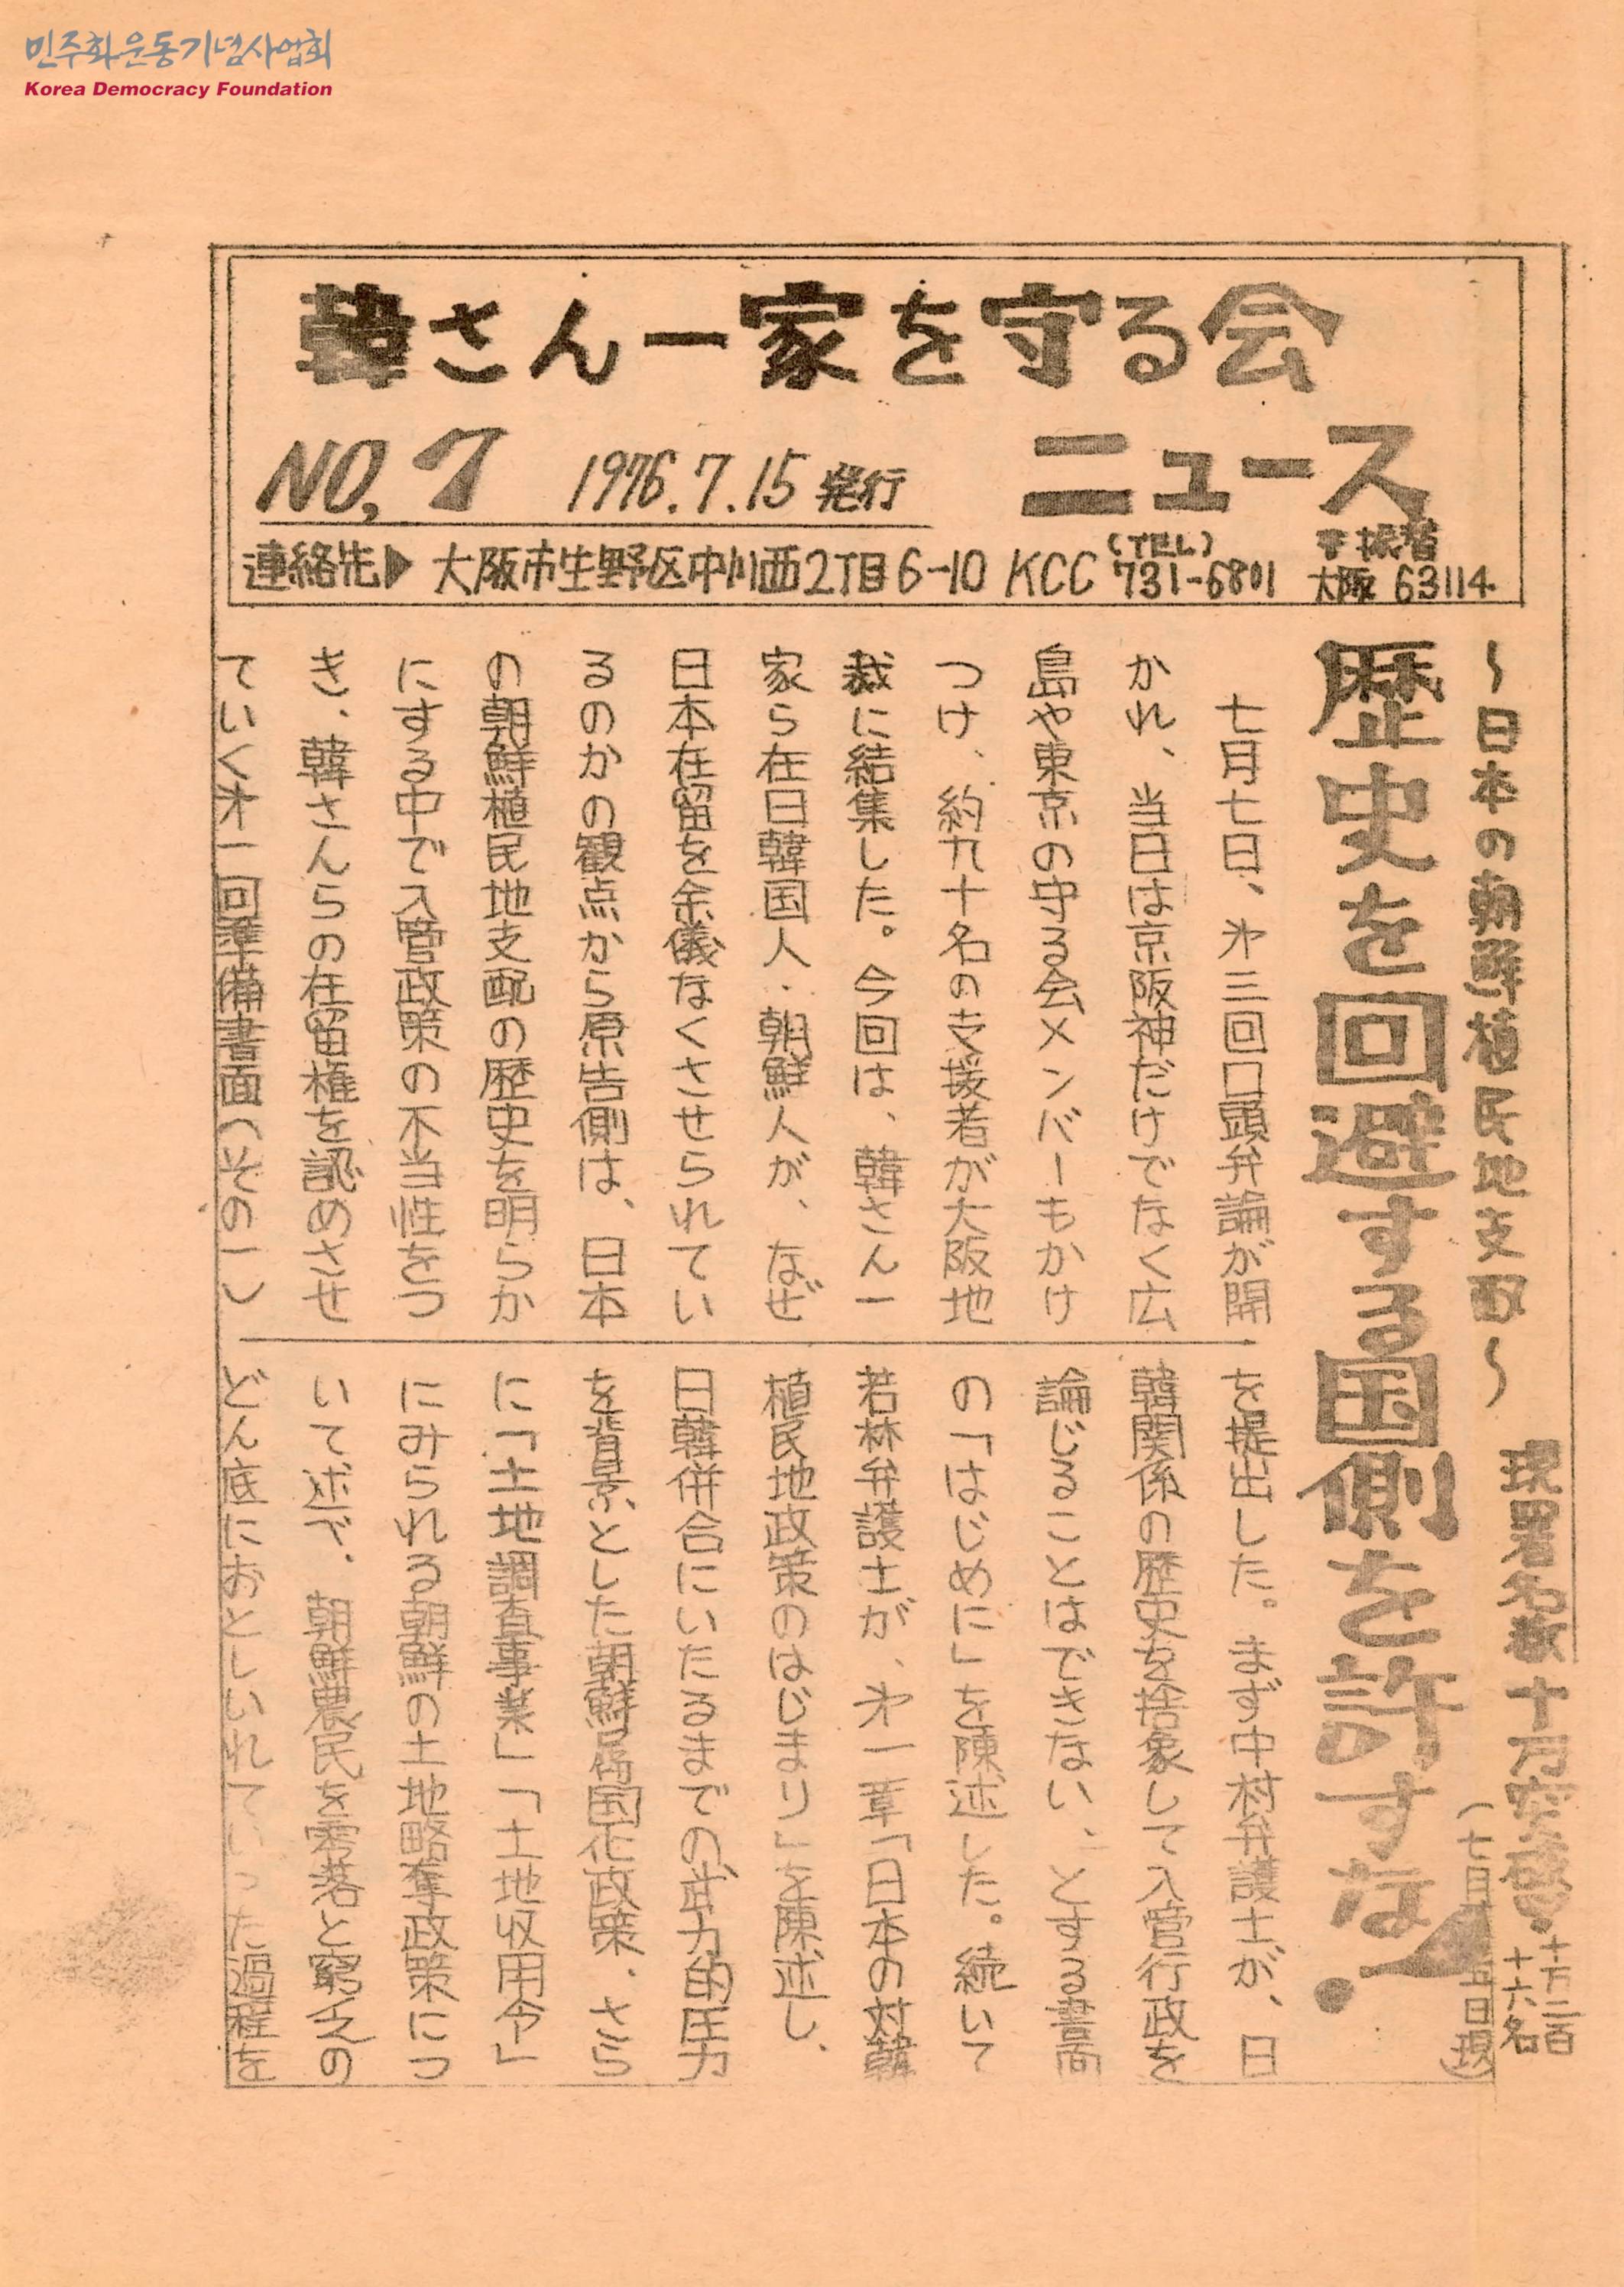 민주화운동기념사업회
Korea Democracy Foundation
韓さん一家を守る会
ニュース
NO, 7 1976.7.15 発行
連絡先▶ 大阪市生野区中川西2丁目6-10 KCC (TEL) 731-6801 振替 大阪 63114
〜日本の朝鮮植民地支配〜
歴史を回避する国側を許すな!
現署名数十万突破!
十万二百
十六名
七月七日、㐧三回口頭弁論が開
かれ、当日は京阪神だけでなく広
島や東京の守る会メンバーもかけ
つけ、約九十名の支援者が大阪地
裁に結集した。今回は、韓さん一
家ら在日韓国人・朝鮮人が、なぜ
日本在留を余儀なくさせられてい
るのかの観点から原告側は、日本
の朝鮮植民地支配の歴史を明らか
にする中で入管政策の不当性をつ
き、韓さんらの在留権を認めさせ
ていく㐧一回準備書面(その一)
を提出した。まず中村弁護士が、日
韓関係の歴史を捨象して入管行政を
論じることはできない、とする書面
の「はじめに」を陳述した。続いて
若林弁護士が、㐧一章「日本の対韓
植民地政策のはじまり」を陳述し、
日韓併合にいたるまでの武力的圧力
を背景とした朝鮮属国化政策、さら
に「土地調査事業」「土地収用令」
にみられる朝鮮の土地略奪政策につ
いて述べ、朝鮮農民を零落と窮乏の
どん底におとしいれていった過程を